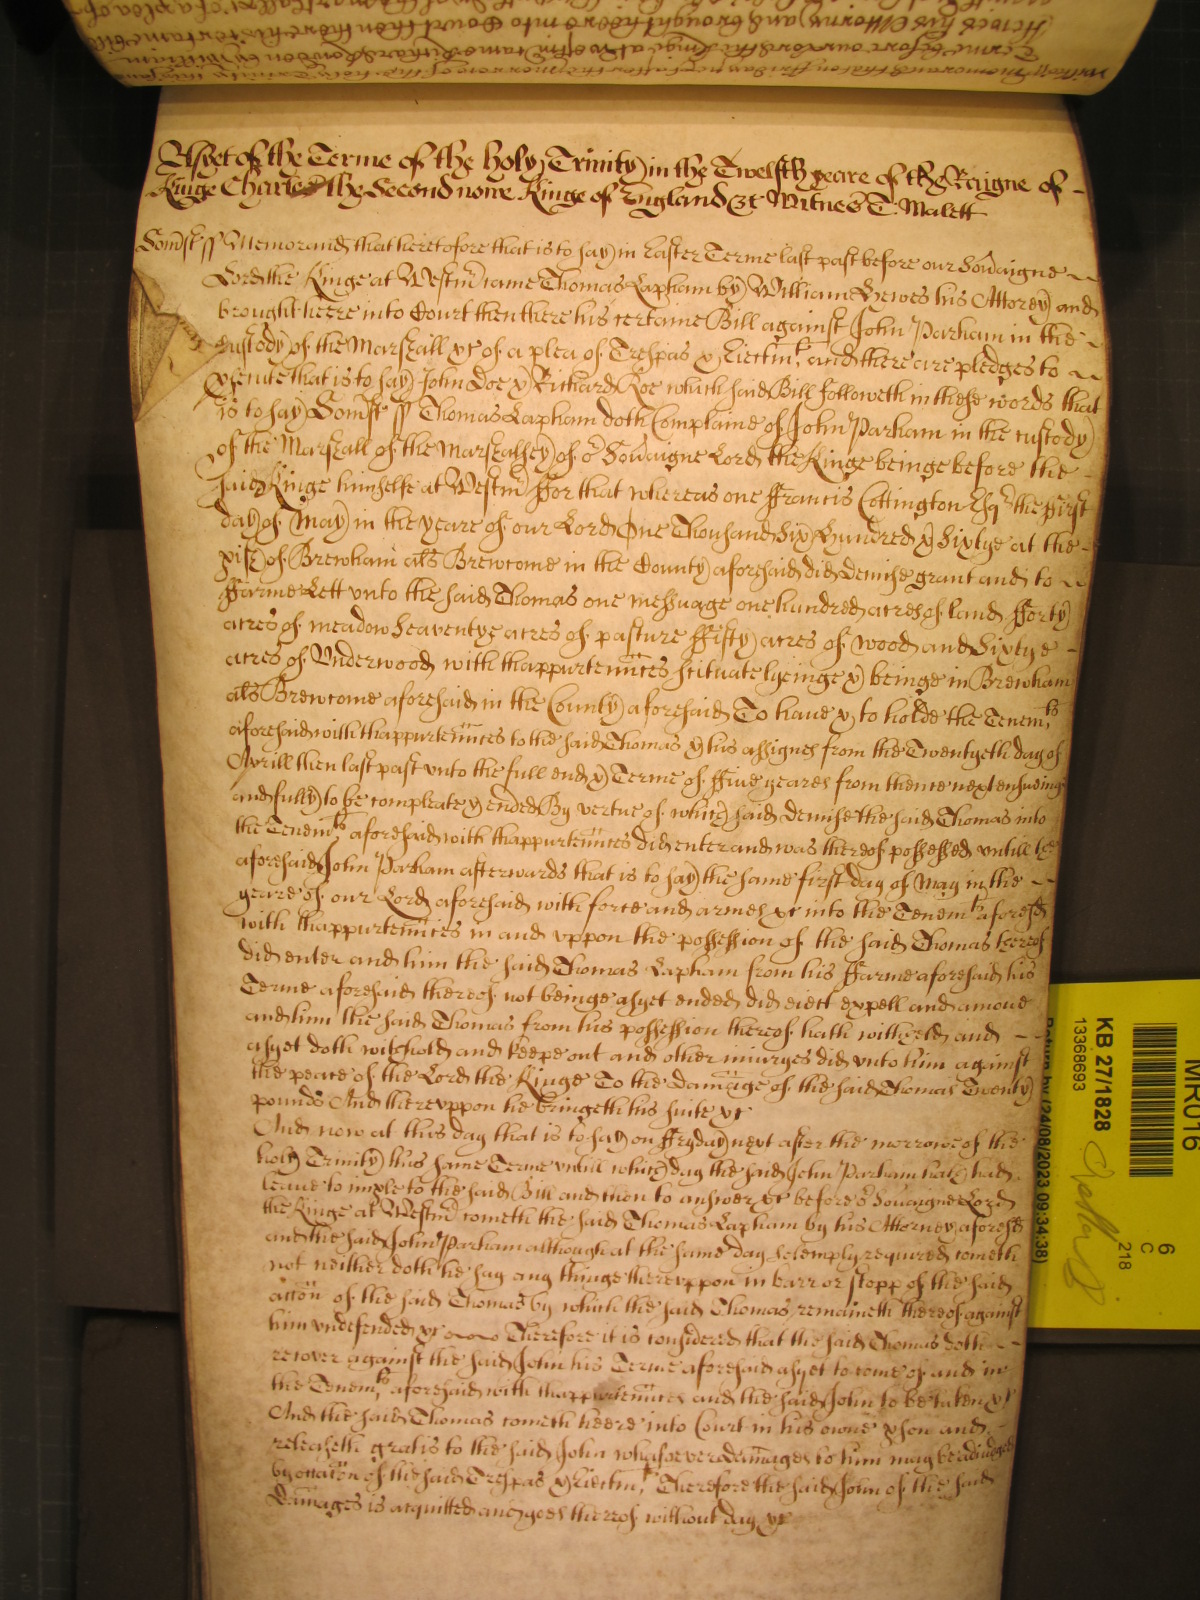 Asyet of the Terme of the holy Trinity in the Twelfth yeare of the Raigne of
Kinge Charles the Second nowe Kinge of England &c Witnes T. Malett
Som̃st ss Memorand that heretofore that is to say in Easter Terme last past before our Sov̄aigne
Lord the Kinge at Westm̄ came Thomas Lapham by William Hewes his Attorey and
brought heere into Court then there his certaine Bill against John Parham in the
custody of the Marshall &c of a plea of Trespas & Eiectm̄t and there are pledges to
psecute that is to say John Doe & Richard Roe which said Bill followeth in these words that
is to say Som̃st ss Thomas Lapham doth Complaine of John Parham in the custody
of the Marshall of the Marshalsey of or Sov̄aigne Lord the Kinge beinge before the
said Kinge himselfe at Westm̄ ffor that whereas one ffrancis Cottington Esqr the first
day of May in the yeare of our Lord One Thousand Six Hundred & Sixtye at the
pish of Brewham als Brewcome in the County aforesaid did demise grant and to
ffarme Lett vnto the said Thomas one messuage one hundred acres of land fforty
acres of meadow Seaventye acres of pasture ffifty acres of wood and Sixtye
acres of Vnderwood with thappurtenn̄ces scituate lyeinge & beinge in Brewham
als Brewcome aforesaid in the County aforesaid To haue & to holde the Tenemts
aforesaid with thappurtenn̄ces to the said Thomas & his assignes from the Twentyeth day of
Aprill then last past vnto the full end & Terme of ffiue yeares from thence next ensuding
and fully to be compleate & ended By vertue of which said demise the said Thomas into
the Tenemts aforesaid with thappurtenn̄ces did enter and was thereof possessed vntill he
aforesaid John Parham afterwards that is to say the same first day of May in the
yeare of our Lord aforesaid with force and armes &c into the Tenemts aforesd
with thappurtenn̄ces in and vppon the possession of the said Thomas heereof
did enter and him the said Thomas Lapham from his ffarme aforesaid his
Terme aforesaid thereof not beinge asyet ended did eiect expell and amove
and him the said Thomas from his possession thereof hath witheld and
asyet doth withhold and keepe out and other iniuryes did vnto him against
the peace of the Lord the Kinge To the dam̄age of the said Thomas Twenty
pounds And therevppon he bringeth his suite &c
And now at this day that is to say on ffryday next after the morrowe of the
holy Trinity this same Terme vntill which day the said John Parham hath had
leaue to imple to the said Bill and then to answer &c before or Sov̄aigne Lord
the Kinge at Westm̄ cometh the said Thomas Lapham by his Attorney aforesd
and the said John Parham although at the same day solemply required cometh
not neither doth he say any thinge therevppon in barr or stopp of the said
acc̄on of the said Thomas by which the said Thomas remaineth thereof against
him vndefended &c Therefore it is considered that the said Thomas doth
recover against the said John his Terme aforesaid asyet to come of and in
the Tenemts aforesaid with thappurtenn̄ces and the said John to be taken &c
And the said Thomas cometh heere into Court in his owne pson and
releaseth gratis to the said John whatsoever dam̄ages to him may be adiudged
by occac̄on of the said Trespas & Eiectm̄t Therefore the said John of the said
Dam̄ages is acquitted and goes thereof without day &c
MR016
KB 27/1828
13368693
6
C
218
Return by (24/08/2023 09:34:38)